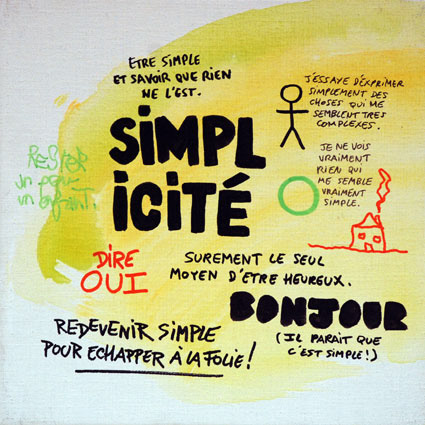 ETRE SIMPLE
ET SAVOIR QUE RIEN
NE L'EST.
SIMPL
ICITÉ
J'ESSAYE D'EXPRIMER
SIMPLEMENT DES
CHOSES QUI ME
SEMBLENT TRES
COMPLEXES.
JE NE VOIS
VRAIMENT
RIEN QUI
ME SEMBLE
VRAIMENT
SIMPLE.
RESTER
UN PEU
UN ENFANT.
DIRE
OUI
SUREMENT LE SEUL
MOYEN D'ETRE HEUREUX.
BONJOUR
(IL PARAIT QUE
C'EST SIMPLE!)
REDEVENIR SIMPLE
POUR ECHAPPER À LA FOLIE!